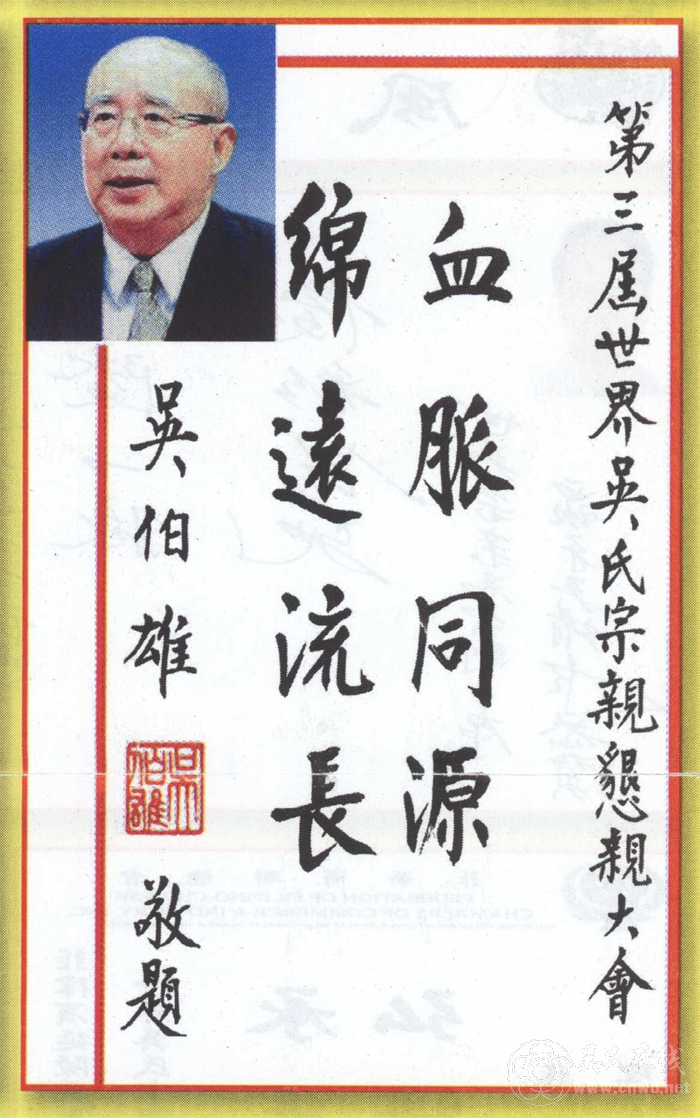 第三屆世界吳氏宗親懇親大會
血脈同源
綿遠流長
吳伯雄
敬題
吳伯雄
www.cnwu.net